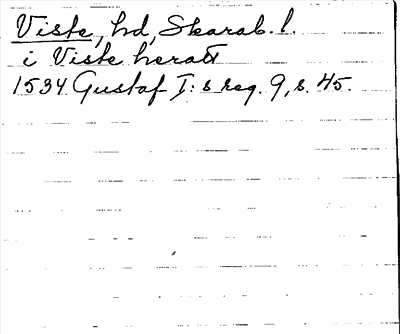 Viste, hd, Skarab. l.
i Viste heratt
1534 Gustaf I: s reg. 9, s. 45.